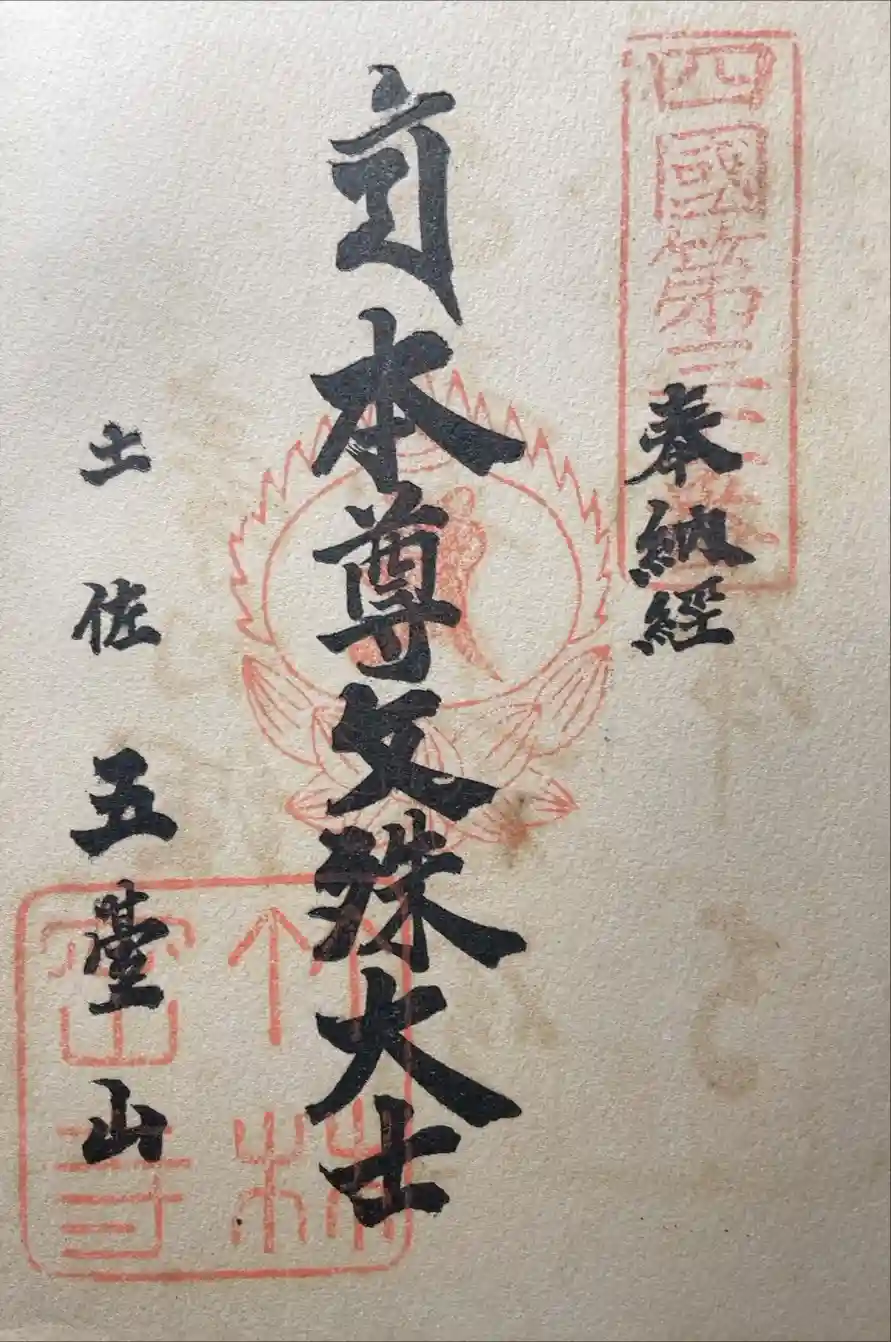 四國第三十一番
奉納經
本尊文殊大士
土佐 五臺山
竹林
密寺